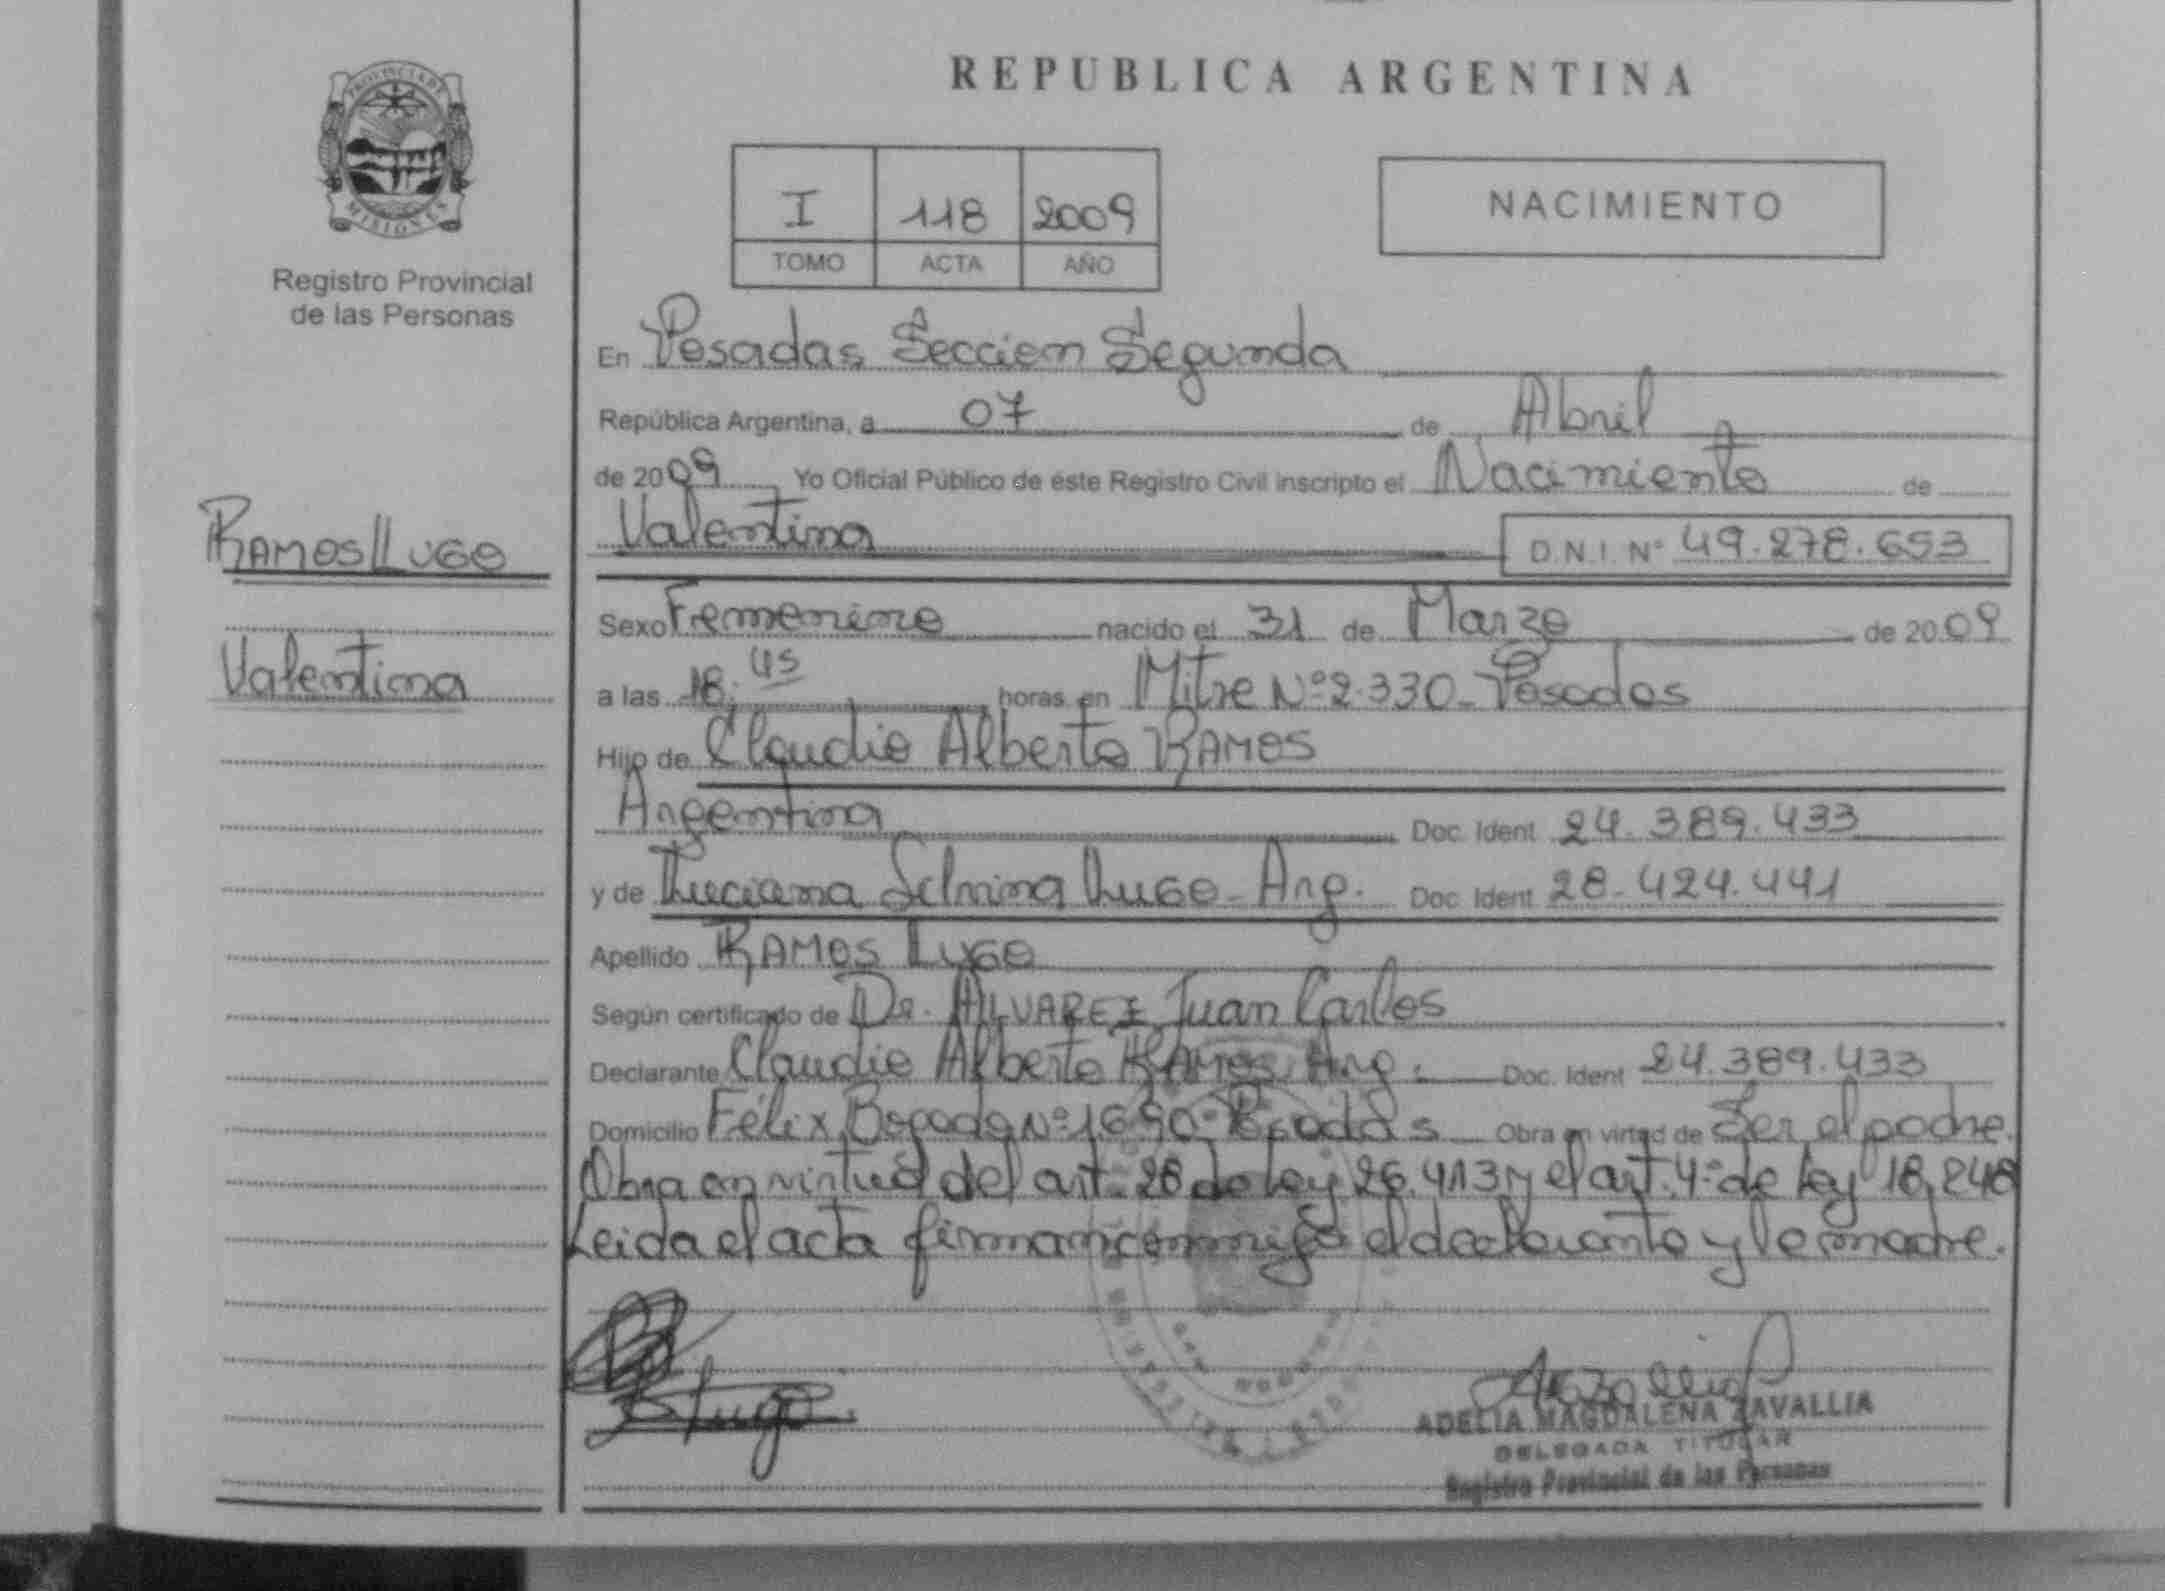 PROVINCIA DE
MISIONES
Registro Provincial
de las Personas
RAMOS LUGO
Valentina
REPUBLICA ARGENTINA
I 118 2009
TOMO ACTA AÑO
NACIMIENTO
En Posadas Seccion Segunda
República Argentina, a 07 de Abril
de 2009 Yo Oficial Público de éste Registro Civil inscripto el Nacimiento de
Valentina D.N.I. Nº 49.278.653
Sexo Femenino nacido el 31 de Marzo de 2009
a las 18:45 horas en Mitre Nº 2.330 - Posadas
Hijo de Claudio Alberto RAMOS
Argentina Doc. Ident 24.389.433
y de Luciana Lugo - Arg. Doc. Ident 28.424.441
Apellido RAMOS LUGO
Según certificado de Dr. ALVAREZ Juan Carlos
Declarante Claudio Alberto RAMOS Arg. Doc. Ident 24.389.433
Domicilio Félix Bogado Nº 1690 - Posadas Obra en virtud de Ser el padre.
Obra en virtud del art. 28 de Ley 26.413 y el art. 4º de Ley 18.248
Leida el acta firman conmigo el declarante y la madre.
Lugo
ADELIA MAGDALENA ZAVALLIA
DELEGADA TITULAR
Registro Provincial de las Personas